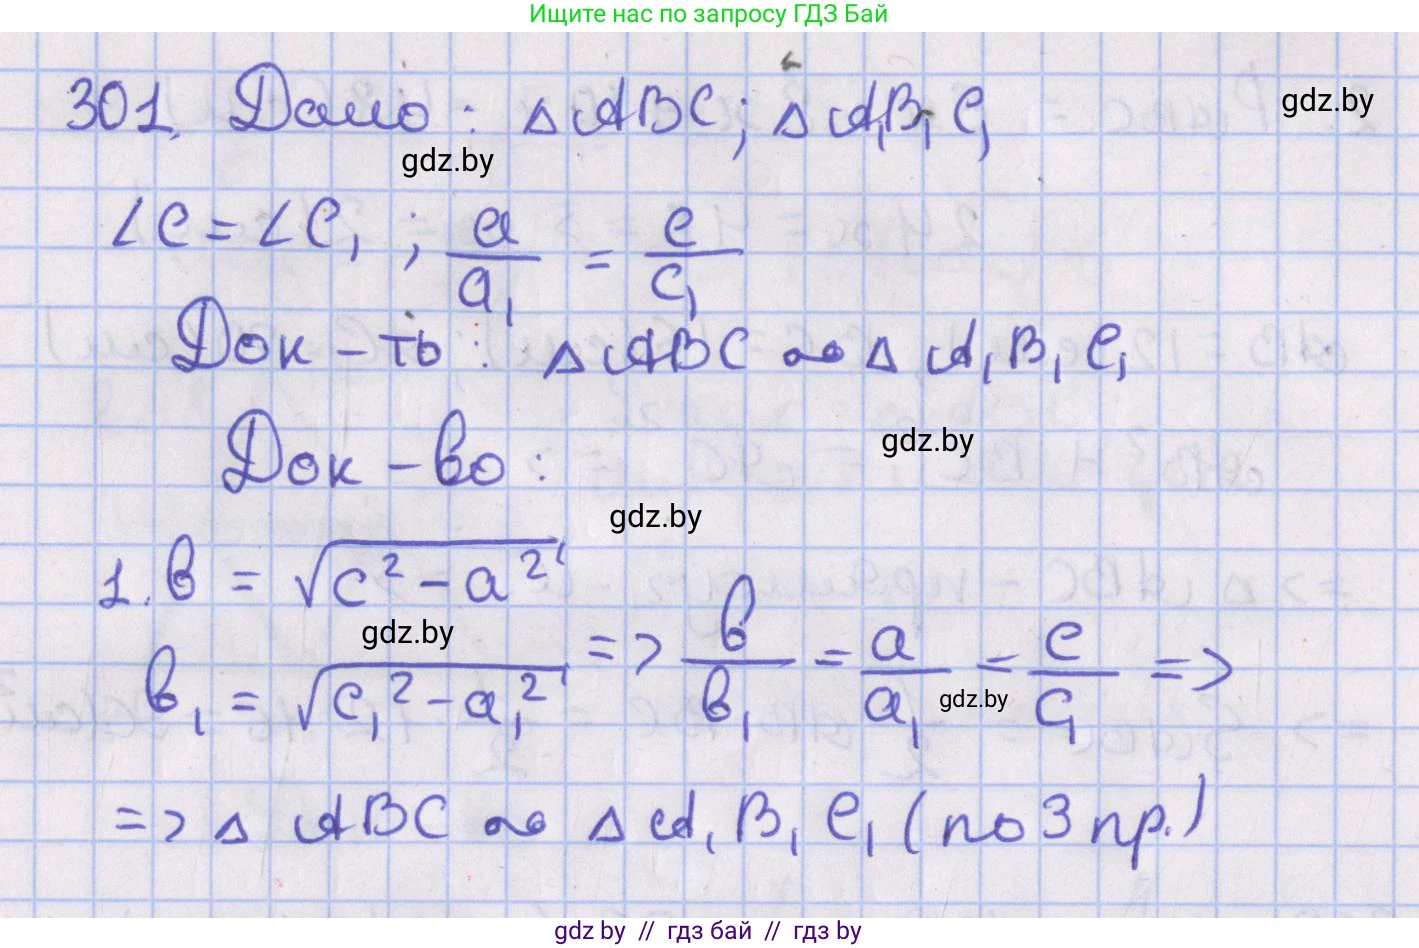 Ищите нас по запросу ГДЗ Бай
301. Дано: △ABC; △A₁B₁C₁
gdz.by
gdz.by
∠C = ∠C₁; a/a₁ = c/c₁
Док-ть: △ABC ∾ △A₁B₁C₁
Док-во:
gdz.by
gdz.by
1. в = √(c² - a²)
gdz.by
в₁ = √(c₁² - a₁²) => в/в₁ = a/a₁ = c/c₁ =>
gdz.by
=> △ABC ∾ △A₁B₁C₁ (по 3 пр.)
gdz.by // гдз бай // гдз by